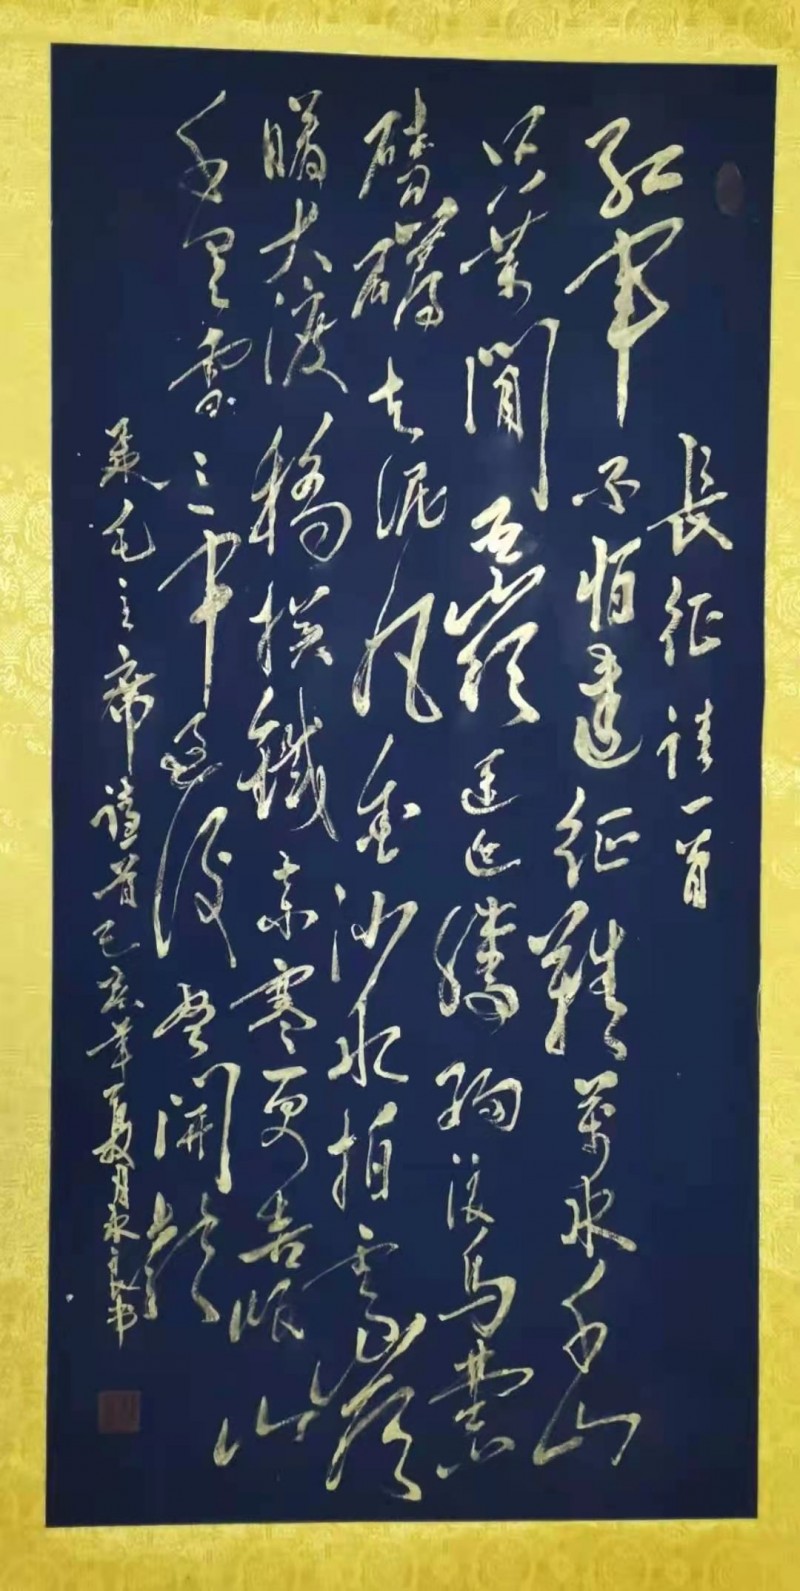 長征詩一首
紅軍不怕遠征難萬水千山
只等閒五嶺逶迤騰細浪烏蒙
磅礡走泥丸金沙水拍雲崖
暖大渡橋橫鐵索寒更喜岷山
千里雪三軍過後盡開顏
录毛主席詩首己亥年夏月永良书